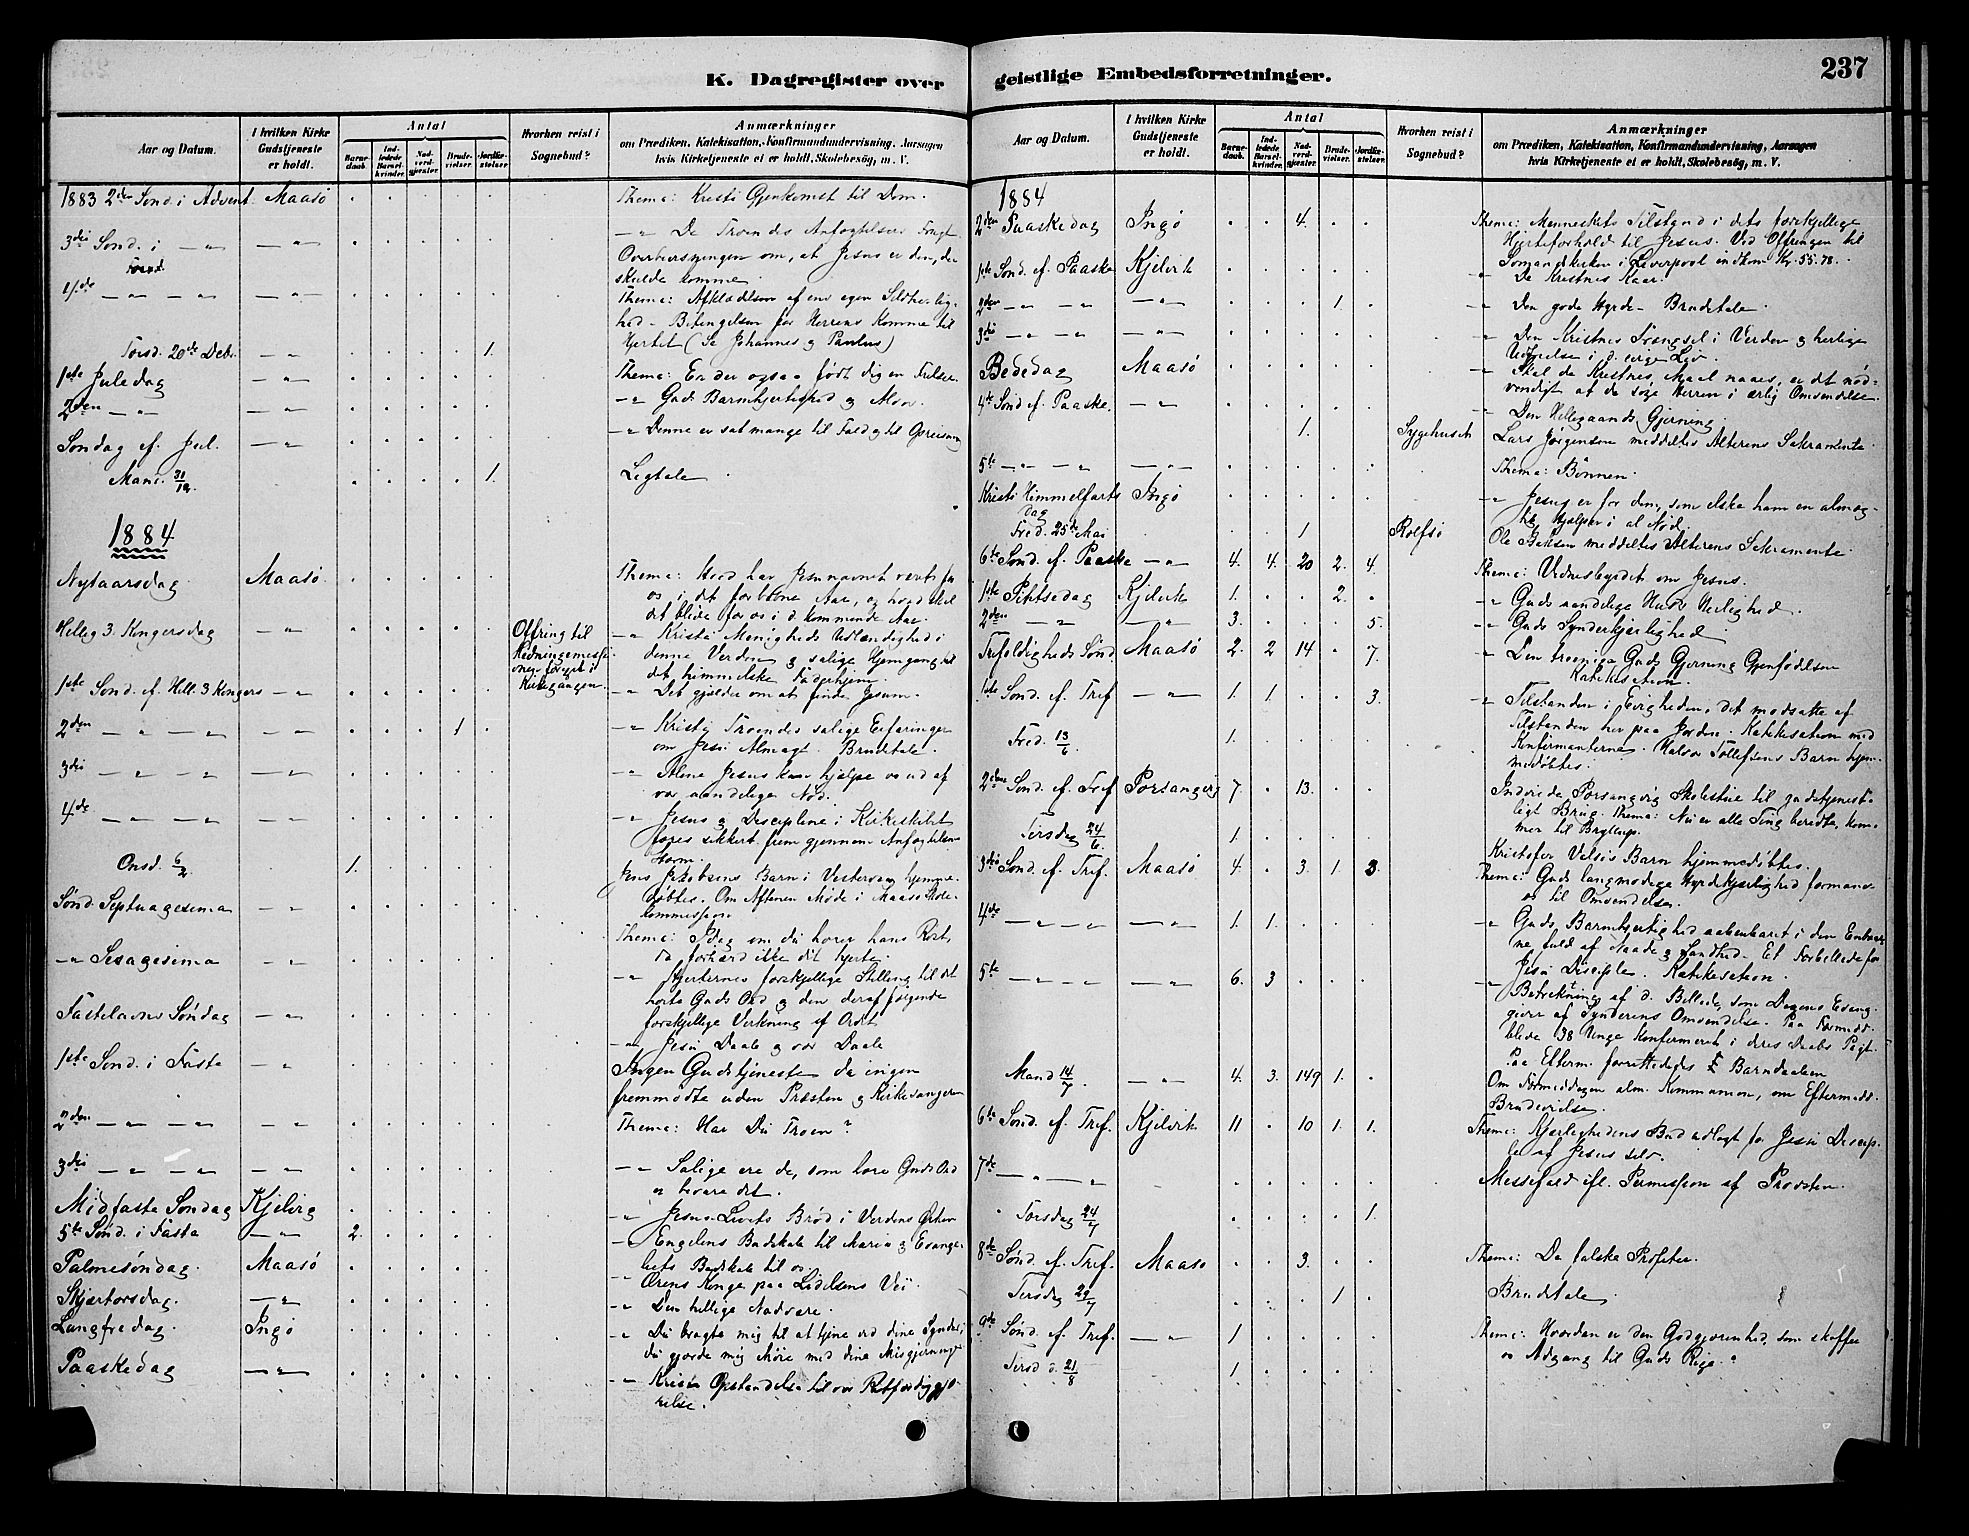 K. Dagregister over
Aar og Datum.
I hvilken Kirke Gudstjeneste er holdt.
Antal
Barnedaab.
Indledede Barselkvinder.
Nadverdgjester.
Brudevielser.
Jordfæstelser.
Hvorhen reist i Sognebud?
Anmærkninger
om Prædiken, Katekisation, Konfirmandundervisning. Aarsagen
hvis Kirketjeneste ei er holdt, Skolebesøg, m. V.
1883 2den Sond. i Advent Maasö Thema: Kristi Gjenkomst til Dom.
3die Sond. i —„— —„— —„— De Troendes Anfægtelser. Frugt
Overbevisningen om, at Jesus er den, der
skulde komme
4de —„— —„— —„— Thema: Afklædelsen af en egen
hed – Betingelsen for Herrens Komme til
Hjertet (Se Johannes og Paulus)
Torsd. 20de Debr. —„— 1.
1ste Juledag —„— Thema: Er der ogsaa født dig en Frelser.
2den —„— —„— —„— Guds Barmhjertighed og Alvor.
Søndag ef. Jul. —„— —„— Denne er sat mange til Fald og til Opreisning
Mand. 31/12. 1. Ligtale
1884
Nytaarsdag Maasö. Thema: Hvad har Jesunavnet været for
os i det forløbne Aar, og hvad skal
det blive for os i d. kommende Aar.
Hellig 3. Kongersdag —„— Offring til —„— Kristi Menigheds Udlændighed i
denne Verden og salige Hjemgang til
det himmelske Faderhjem.
1ste Sond. ef. Hell. 3 Kongers —„— Kirkegangen. —„— Det gjælder om at finde Jesum.
2den —„— —„— —„— 1 —„— Kristi Troendes salige Erfaringer
om Jesu Almagt. Brudetale.
3die —„— —„— —„— —„— Alene Jesus kan hjælpe os ud af
vor aandelige Nød.
4de —„— —„— —„— —„— Jesus og Disciplene i Kirkeskibet
føres sikkert frem gjennem Anfægtelsens
Storm.
Onsd. 6/2 1. Jens Jakobsens Barn i hjemme-
døbtes. Om Aftenen Møde i Maasö Skole-
kommission
Sønd. Septuagesima —„— Thema: Idag om du hører hans Røst,
da forhærd ikke dit Hjerte.
—„— Sexagesima —„— —„— Hjerternes forskjellige Stilling til det
hørte Guds Ord og den deraf følgende
forskjellige Virkning af Ordet
Fastelavns Søndag —„— —„— Jesu Daab og vor Daab
1ste Sønd. i Faste —„— Ingen Gudstjeneste da ingen
fremmødte uden Præsten og Kirkesangeren
2den —„— —„— —„— Thema: Har Du Troen?
3die —„— —„— —„— —„— Salige ere de, som høre Guds Ord
og bevare det.
Midfaste Søndag Kjelvig —„— Jesus Livets Brød i Verdens Ørken
5te Sønd. i Faste —„— 2. —„— Engelens Budskab til Maria og Evange-
liets Budskab til os.
Palmesøndag. Maasö —„— Ærens Konge paa Lidelsens Vei
Skjærtorsdag. —„— —„— Den hellige Nadvere.
Langfredag. Ingö —„— Du bragte mig til at tjene ved dine Synder,
du gjorde mig Möie med dine Misgjerninger
Paaskedag —„— —„— Kristi Opstandelse til vor Retfærdiggjø-
relse.
geistlige Embedsforretninger. 237
Aar og Datum.
I hvilken Kirke Gudstjeneste er holdt.
Antal
Barnedaab.
Indledede Barselkvinder.
Nadverdgjester.
Brudevielser.
Jordfæstelser.
Hvorhen reist i Sognebud?
Anmærkninger
om Prædiken, Katekisation, Konfirmandundervisning, Aarsagen
hvis Kirketjeneste ei er holdt, Skolebesøg, m. V.
1884
2den Paaskedag Ingö 4. Thema: Menneskets Tilstand i dets forskjellige
Hjerteforhold til Jesus. Ved Offringen til
Sømandskirken i Liverpool indkom Kr. 55.78.
1ste Sond. ef. Paaske Kjelvik „ De Kristnes Kaar.
2den —„— —„— —„— 1. —„ Den gode Hyrde – Brudetale.
3die —„— —„— —„— „ Den Kristnes Trængsel i Verden og herlige
Udfrielse i d. evige Liv.
Bededag Maasö „ Skal de Kristnes Maal naaes, er det nød-
vendigt at de søge Herren i ærlig Omvendelse.
4de Sond ef. Paaske. —„— „ Den Helligaands Gjerning
1. Sygehuset Lars Jørgensen meddeltes Alterens Sakramente
5te —„— —„— —„— Thema: Bønnen.
Kristi Himmelfarts Dag Ingö —„ Jesus er for dem, som elske ham en almæg-
tig Hjælper i al Nød.
Fred. 25de Mai 1 Rolfsö Ole meddeltes Alterens Sakramente
6te Sond. ef. Paaske —„— 4. 4. 20 2. 4. Thema: Vidnesbyrdet om Jesus.
1ste Pintsedag Kjelvik 1. 2. „ Guds aandelige Huus Herlighed.
2den —„— —„— 3. 5. „ Guds Synderkjærlighed
Trefoldigheds Sønd. Maasö 2. 2 14 7. „ Den treenige Guds Gjerning Gjenfødelsen
Katekisation.
1ste Sond. ef. Tref —„— 1. 1. 3. „ Tilstanden i Evigheden, det modsatte af
Tilstanden her paa Jorden. Katekisation med
Konfirmanterne.
Fred. 13/6. 1. Halvor Tollefsens Barn hjem-
medøbtes.
2den Sond. ef. Tref Porsangvig 7. 13. Indviede Porsangvig Skolestue til gudstjeneste-
ligt Brug. Thema: Nu er alle Ting beredte, kom-
mer til Bryllup.
Tirsdag 24/6. 1. Kristofer Barn hjemmedøbtes.
3die Sond. ef. Tref. Maasö 4. 3. 1 3. Thema: Guds langmodige Hyrdekjærlighed formaner
os til Omvendelse.
4de —„— —„— —„— 1. 1. „ Guds Barmhjertighed aabenbaret i den Enbaar-
ne fuld af Naade og Sandhed. Et Forbillede for
Jesu Disciple. Katekisation.
5te —„— —„— —„— 6. 3 „ Betrekning af d. Billede, som Dagens Evang.
giver af Synderens Omvendelse. Paa Formidd.
bleve 38 Unge konfirmeret i deres Daabs Pagt.
Paa Efterm. forrettedes Barnedaaben
Mand 14/7. —„— 4. 3. 149 1. Om Formiddagen alm. Kommunion, om Eftermidd.
Brudevielse.
6te Sond. ef. Tref. Kjelvik 11 10 1. 1. Thema: Kjærlighedens Bud udlagt for Jesu Discip-
le af Jesus selv.
7de —„— —„— Messefald ifl. Permission af Provsten.
Torsdag 24/7 1.
8de Sønd. ef. Tref. Maasö 3. Thema: De falske Profeter.
Tirsdag 29/7 1 Brudetale
9de Sønd. ef. Tref. —„— 1 Thema: Hvordan er den Retfærdighed, som skaffer
os Adgang til Guds Rige?
Torsd d. 21/8 1.